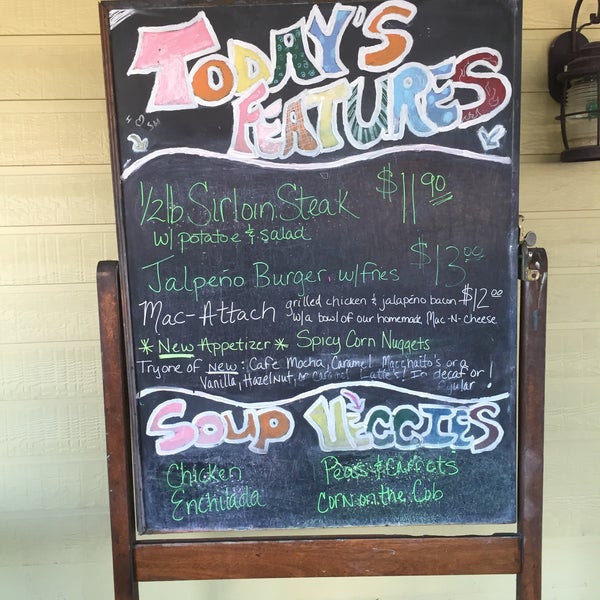 Today's
Features
1/2lb Sirloin Steak $11.90
w/ potatoe & salad
Jalpeño Burger w/fries $13.00
Mac-Attach grilled chicken & jalapeño bacon $12.00
w/a bowl of our homemade Mac-N-cheese
* New Appetizer * Spicy Corn Nuggets
Try one of new: Cafe Mocha, Caramel Macchaito's or a
Vanilla, Hazelnut, or caramel Latte's! In decaf or
regular!
Soup Veggies
Chicken Peas & Carrots
Enchilada Corn on the Cob